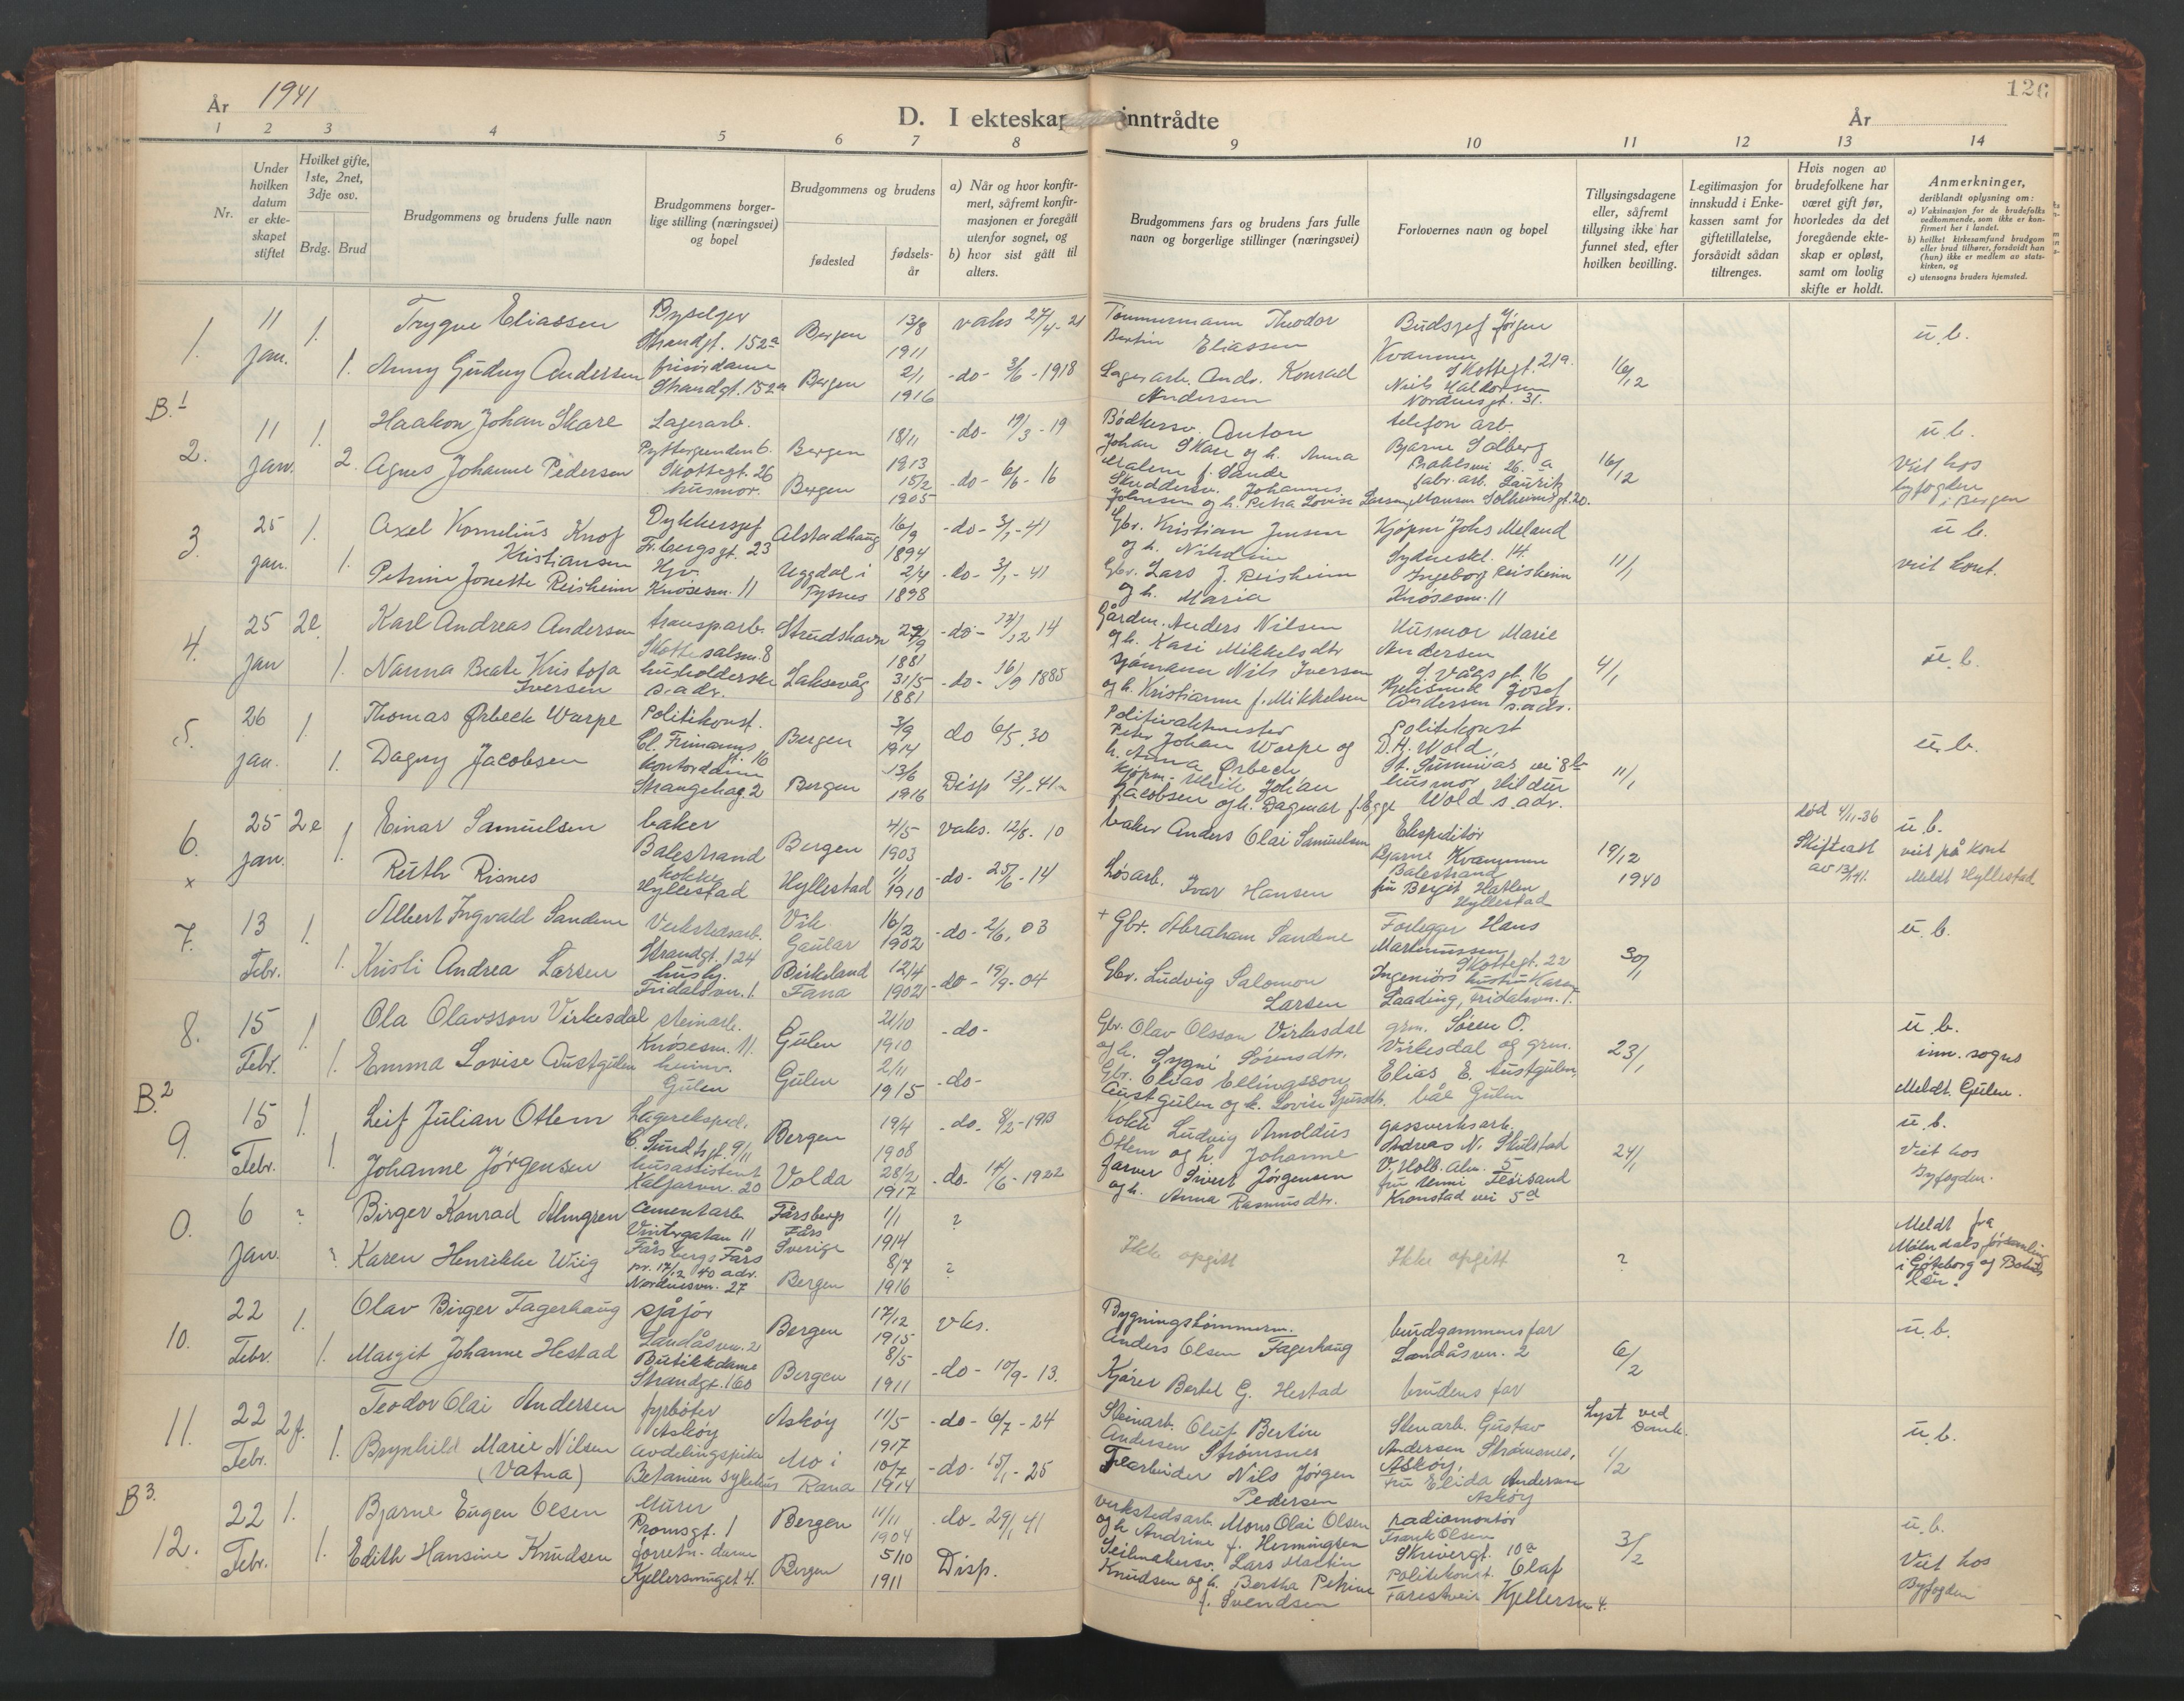 126
År 1941
D. I ekteskap inntrådte
År
1 2 3 4 5 6 7 8 9 10 11 12 13 14
Nr.
Under hvilken datum er ekte-skapet stiftet
Hvilket gifte, 1ste, 2net, 3dje osv.
Brdg. Brud
Brudgommens og brudens fulle navn
Brudgommens borger-lige stilling (næringsvei) og bopel
Brudgommens og brudens
fødested
fødsels-år
a) Når og hvor konfir-mert, såfremt konfir-masjonen er foregått utenfor sognet, og
b) hvor sist gått til alters.
Brudgommens fars og brudens fars fulle navn og borgerlige stillinger (næringsvei)
Forlovernes navn og bopel
Tillysingsdagene eller, såfremt tillysing ikke har funnet sted, efter hvilken bevilling.
Legitimasjon for innskudd i Enke-kassen samt for giftetillatelse, forsåvidt sådan tiltrenges.
Hvis nogen av brudefolkene har været gift før, hvorledes da det foregående ekte-skap er opløst, samt om lovlig skifte er holdt.
Anmerkninger, deriblandt oplysning om:
a) Vaksinasjon for de brudefolks vedkommende, som ikke er kon-firmert her i landet.
b) hvilket kirkesamfund brudgom eller brud tilhører, forsåvidt han (hun) ikke er medlem av stats-kirken, og
c) utensogns bruders hjemsted.
1. 11 jan. 1. Trygve Eliassen
Strandgt. 152a Bergen 13/8 1911 vaks 27/4-21
Theodor Bertin Eliassen
Budsjef Jørgen Kvamme Skottegt. 21a
u.b.
1. Anny Gudny Andersen frisørdame Strandgt. 152a Bergen 2/1 1916 -do- 3/6-1918
Lagerarb. Andr. Konrad Andersen
Niels Haldorsen Nordnesgt. 31. 16/12
B.1
2. 11 jan. 1. Haakon Johan Skare Lagerarb. Bergen 18/11 1913 -do- 19/3-19
Anton Johan Skare og h. Anna Malene f. Sande
telefon arb. Bjarne Solberg
u.b.
2. Agnes Johanne Pedersen Skottegt. 26 husmor. Bergen 15/2 1905 -do- 6/6-16
Johannes Johnsen og h. Petra Lovise Larsen
fabr. arb. Laurik Monsen Solheimsgt. 20. 16/12
Viet hos byfogden i Bergen
3. 25 jan. 1. Axel Kornelius Knof Kristiansen Dykkersjef Alstadhaug 16/9 1894 -do- 3/1-41
Gbr. Kristian Jensen og h.
Kjøpm Johs Meland Sydneskl. 14.
u.b.
1. Petrine Jonette Reisheim Knøsesm. 11 Uggdal i Tysnes 2/4 1898 -do- 3/1-41
Gbr. Lars J. Reisheim og h. Maria
Ingeborg Reisheim Knøsesm. 11 11/1
viet kont.
4. 25 jan 2e Karl Andreas Andersen transparb. Skottesalsm. 8 Strudshavn 27/9 1881 -do- 14
Gårdm. Anders Nilsen og h. Kari Mikkelsdtr
Husmor Marie Andersen
1. Nanna Beate Kristofa Iversen husholderske s. adr. Laksevåg 31/5 1881 -do- 16/9 1885
sjømann Nils Iversen og h. Kristianne f. Mikkelsen
Josef Andersen s. adr. 4/1
u.b.
5. 26 jan. 1. Thomas Ørbeck Warpe Politikonst. Cl. Frimanns gt. 16 Bergen 3/9 1914 do 6/5.30
Politivaktmester Peter Johan Warpe og h. Anna Ørbeck
Politikonst D.H. Wold St. Sunnivas vei 8b
u.b.
1. Dagny Jacobsen kontordame Strangehag. 2 Bergen 13/6 1916 Disp 13/1-41
Kjøpm. Ulrik Johan Jacobsen og h. Dagmar f. Egge
husmor Hildur Wold s. adr. 11/1
6. x 25 jan. 2e Einar Samuelsen baker Balestrand Bergen 4/5 1903 vaks. 12/8-10
baker Anders Olai Samuelsen
Ekspeditør Bjarne Kvamme Balestrand
19/12 1940
død 4/11-36 Skifteatt av 13/1 41.
u.b. viet på kont Meldt Hyllestad
1. Ruth Risnes kokke Hyllestad Hyllestad 1/1 1910 -do- 25/6-14
Løsarb. Ivar Hansen
fru Bergit Hatlem Hyllestad
7. 13 Febr. 1. Albert Ingvald Sandene Verkstedsarb. Strandgt. 124 Vik Gaular 16/2 1902 -do- 2/6, 03
+ Gbr. Abraham Sandene
Forlegger Hans Martinussen Skottegt. 22
u.b.
1. Kristi Andrea Larsen husbg. Fridalsvn. 1. Birkeland Fana 12/4 1902 -do- 19/9-04
Gbr. Ludvig Salomon Larsen
Ingeniørs hustru Karen Laading, Fridalsvn. 1. 30/1
8. 15 Febr. 1. Ola Olavsson Virkesdal steinarb. Knøsesm. 11. Gulen 21/10 1910 -do-
Gbr. Olav Olsson Virkesdal og h. Sygni Sørensdtr.
grm. Søren O. Virkesdal og grm.
u.b. inn. sogns
1. Emma Lovise Austgulen heimv. Gulen Gulen 2/11 1915 -do-
Gbr. Elias Ellingsson Austgulen og h. Lovise Sjursdtr.
Elias E. Austgulen, båe Gulen 23/1
Meldt. Gulen.
B.2
9. 15 Febr. 1. Leif Julian Otlem Lagereksped. C. Sundtsgt. 9/11 Bergen 19/4 1908 -do- 8/2-1913
Kokk Ludvig Arnoldus Otlem og h. Johanne
gassverksarb. Andreas N. Skulstad V. Holb. Alm. 5
u.b.
1. Johanne Jørgensen husassistent Kalfarvn. 20 Volda 28/2 1917 -do- 14/6-1922
Garver Sivert Jørgensen og h. Anna Rasmusdtr.
fru Kronstad vei 5d 24/1
Viet hos Byfogden.
0. 6 Jan. ? Birger Konrad Almgren Cementarb. Vintergatan 11 Fårsbergs Fårs Sverige 1/1 1914 ?
Ikke opgitt Ikke opgitt ?
? Karen Henrikke Wiig pr. 17/12 40 adr. Nordnesvn. 27 Bergen 8/7 1916 ?
Meldt fra Mölndals församling i Göteborg og Bohus län.
10. 22 Febr. 1. Olav Birger Fagerhaug sjåfør Landåsvn. 2 Bergen 17/12 1915 vks.
Bygningstømmerm. Anders Olsen Fagerhaug
brudgommens far Landåsvn. 2
u.b.
1. Margit Johanne Hestad Butikkdame Strandgt. 160 Bergen 8/5 1911 -do- 10/9-13.
Kjører Bertel G. Hestad
brudens far 6/2
11. 22 Febr. 2f. Teodor Olai Andersen fyrbøter Askøy Askøy 11/5 1917 -do- 6/7-24
Steinarb. Oluf Bertin Andersen Strømsnes
Stenarb. Gustav Andersen Strømsnes, Askøy,
Lyst ved Domk. 1/2
u.b.
1. Brynhild Marie Nilsen (Vatna) avdelingspike Betanien sykehus Mo i Rana 10/7 1914 -do- 15/1-25
Nils Jørgen Pedersen
Fru Elida Andersen Askøy
B3.
12. 22 Febr. 1. Bjarne Eugen Olsen Murer Promsgt. 1 Bergen 11/11 1904 -do- 29/1 41
verkstedsarb. Mons Olai Olsen og h Andrine f. Henningsen
radiomontør Frank Olsen Skivergt. 10a
u.b.
1. Edith Hansine Knudsen forretn.-dame Kjellersmuget 4. Bergen 5/10 1911 Disp.
Seilmakersv. Lars Martin Knudsen og h. Bertha Petrine f. Svendsen
Politikonst. Olaf Farestveit Kjellersm 4. 3/2
Viet hos Byfogden